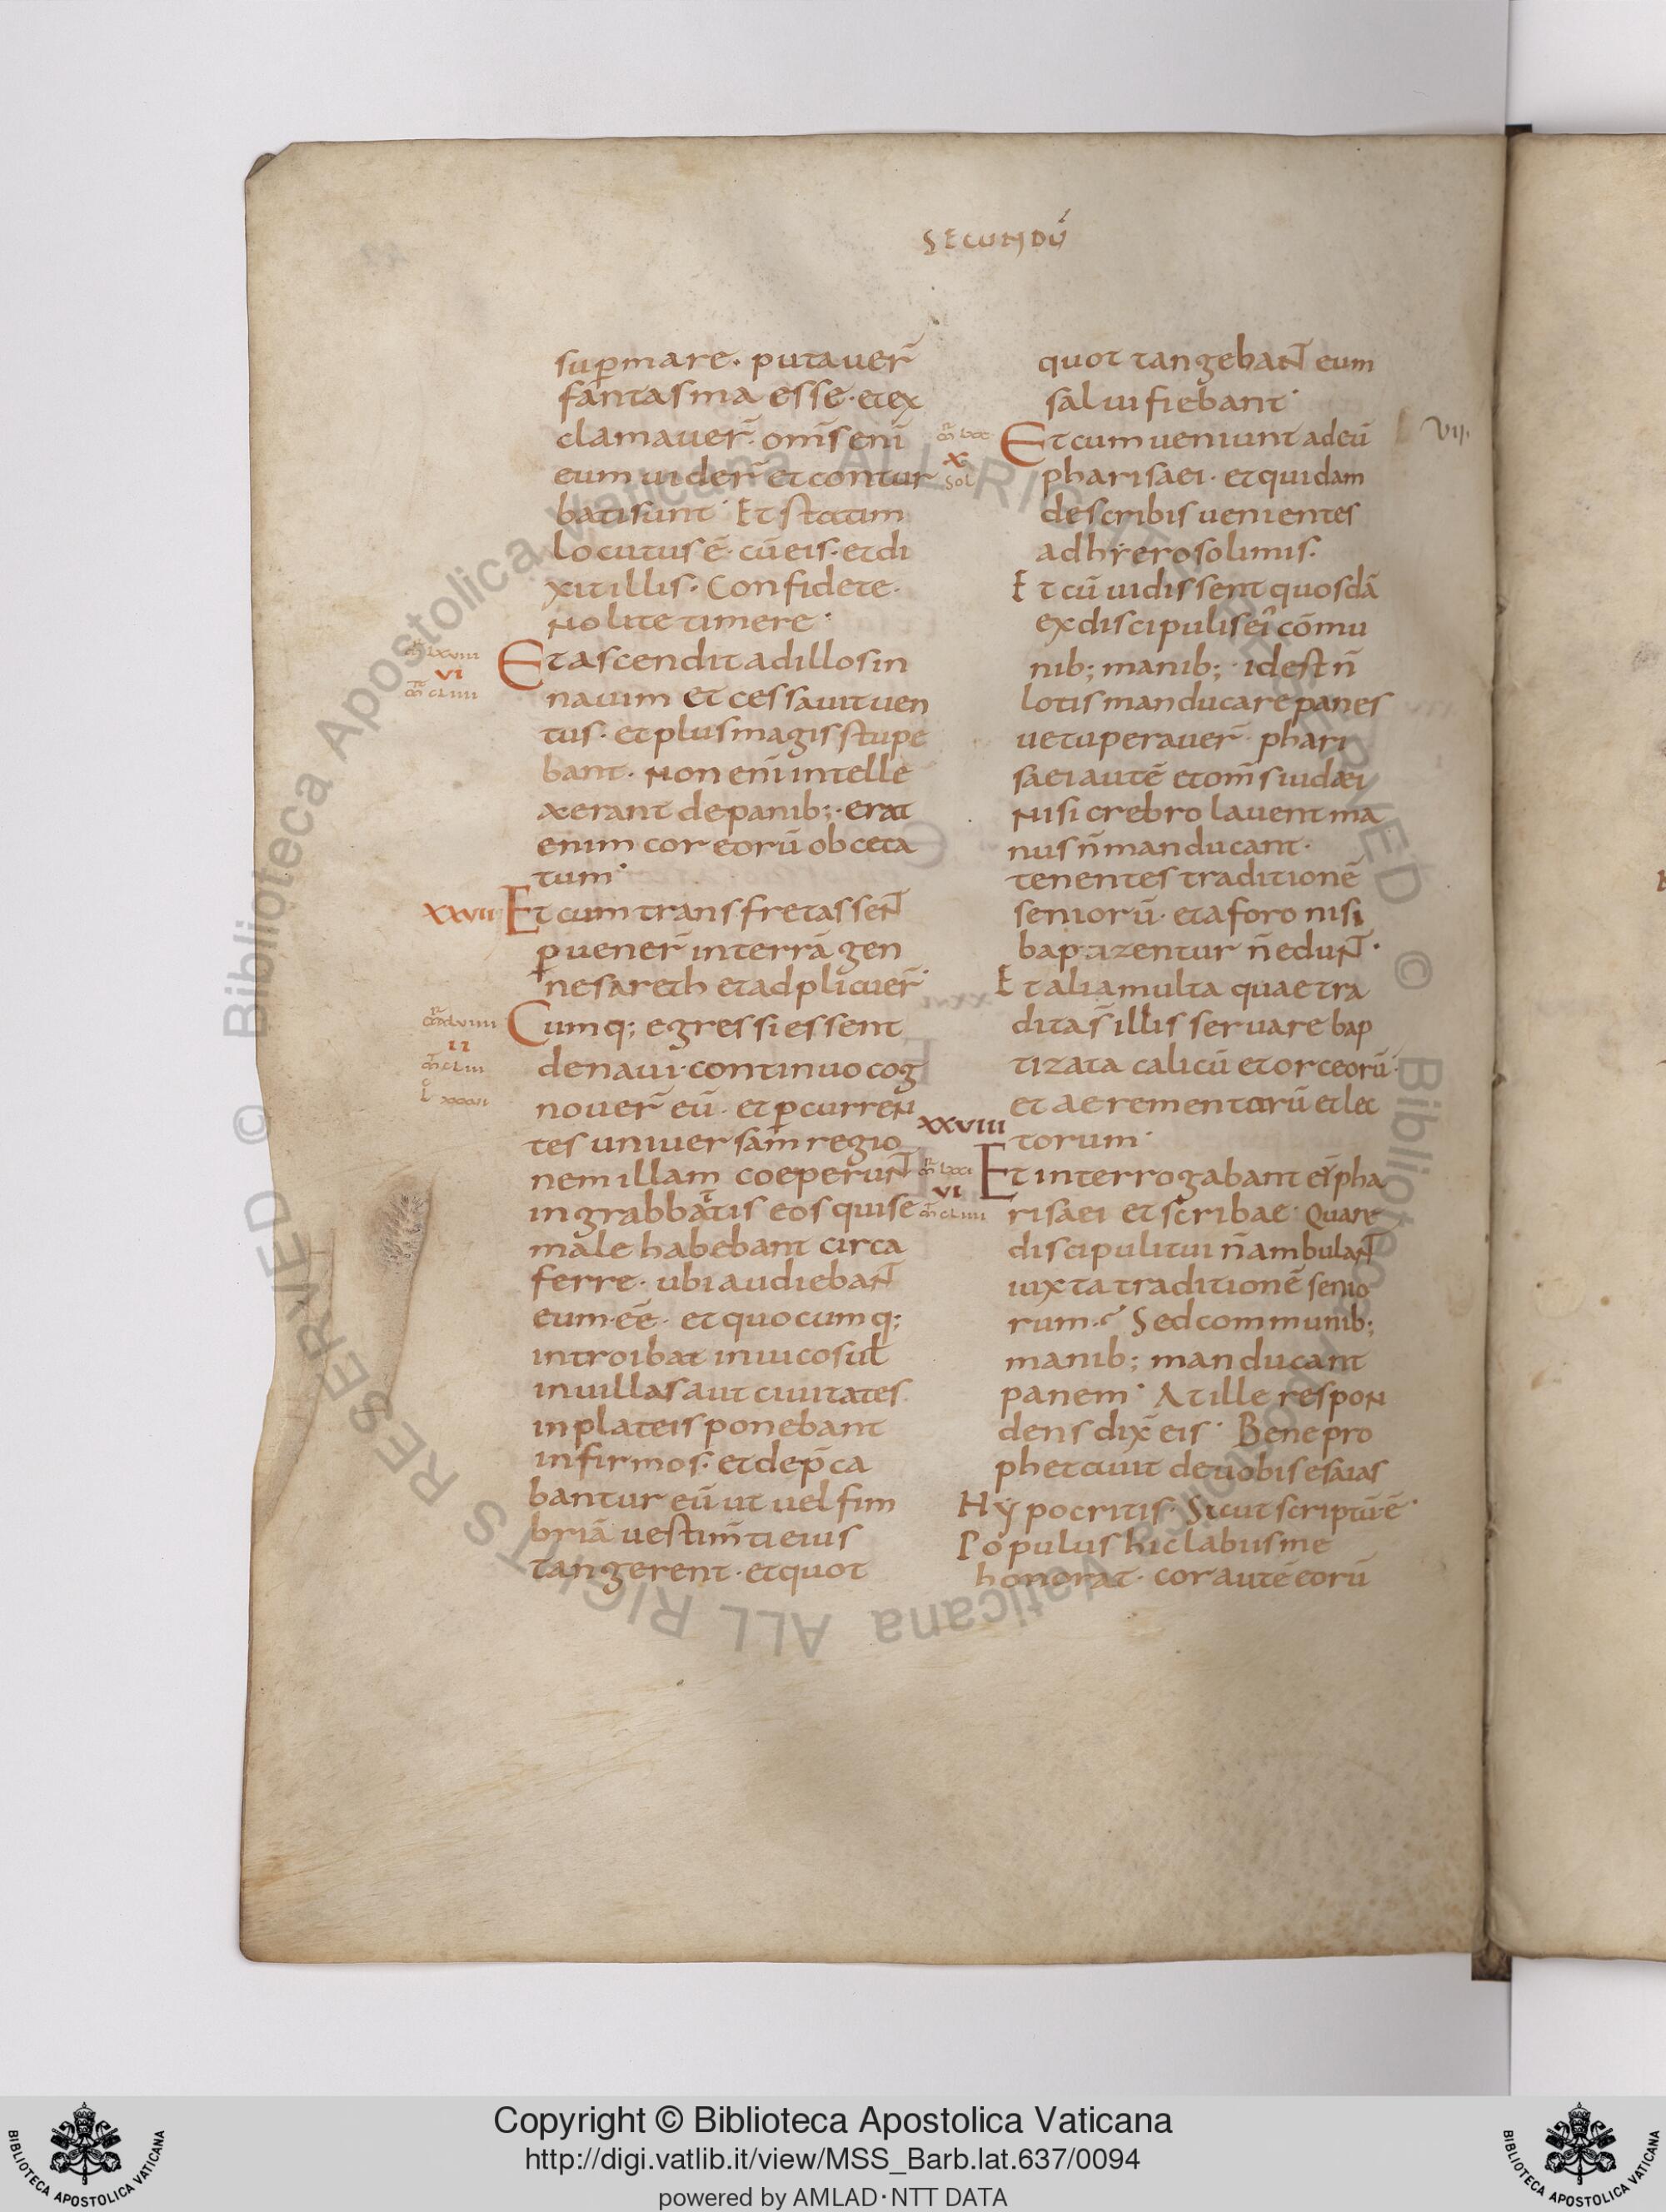 SECUNDŪ
sup̱mare · putauer̄
fantasma esse · et ex
clamauer̄ · om̄s enī
eum uider̄ et contur
bati sunt · Et statim
locutus ē · cū eis · et di
xit illis · Confidete ·
Nolite timere ·
VI
Et ascendit ad illos in
nauim et cessauit uen
tus · et plus magis stupe
bant · Non enī intelle
xerant de panib; · erat
enim cor eorū obceca
tum ·
XXVII Et cum transfretassent
p̱uener̄ in terrā gen
nesareth et adplicuer̄ ·
Cumq; egressi essent
II
de naui · continuo cog
nouer̄ eū · et p̱curren
tes uniuersam regio
nem illam coeperunt
in grabbatis eos qui se
male habebant circa
ferre · ubi audiebant
eum · eē · et quocumq;
introibat in uicos ul
in uillas aut ciuitates
in plateis ponebant
infirmos · et dep̄ca
bantur eū ut uel fim
briā uestim̄ti eius
tangerent · et quot
quot tangebant eum
salui fiebant ·
Et cum ueniunt ad eū
VII.
X
sol
pharisaei · et quidam
de scribis uenientes
ad hyerosolimis ·
Et cū uidissent quosdā
ex discipulis ei᷒ cōmu
nib; manib; · id est n̄
lotis manducare panes
uetuperauer̄ · phari
saei autē et om̄s iudaei
Nisi crebro lauent ma
nus n̄ manducant ·
tenentes traditionē
seniorū · et a foro nisi
baptizentur n̄ edunt ·
Et alia multa quae tra
dita s̄ illis seruare bap
tizata calicū et orceorū ·
et aerementorū et lec
XXVIII
torum ·
Et interrogabant eū pha
VI
risaei et scribae · Quare
discipuli tui n̄ ambulant
iuxta traditionē senio
rum · Sed communib;
manib; manducant
panem · At ille respon
dens dix̄ eis · Bene pro
phetauit de uobis esaias
Hypocritis · Sicut scriptū ē ·
Populus hic labiis me
honorat · cor autē eorū
Copyright © Biblioteca Apostolica Vaticana
http://digi.vatlib.it/view/MSS_Barb.lat.637/0094
powered by AMLAD·NTT DATA
BIBLIOTECA APOSTOLICA VATICANA
BIBLIOTECA APOSTOLICA VATICANA
© Biblioteca Apostolica Vaticana ALL RIGHTS RESERVED © Biblioteca Apostolica Vaticana ALL RIGHTS RESERVED